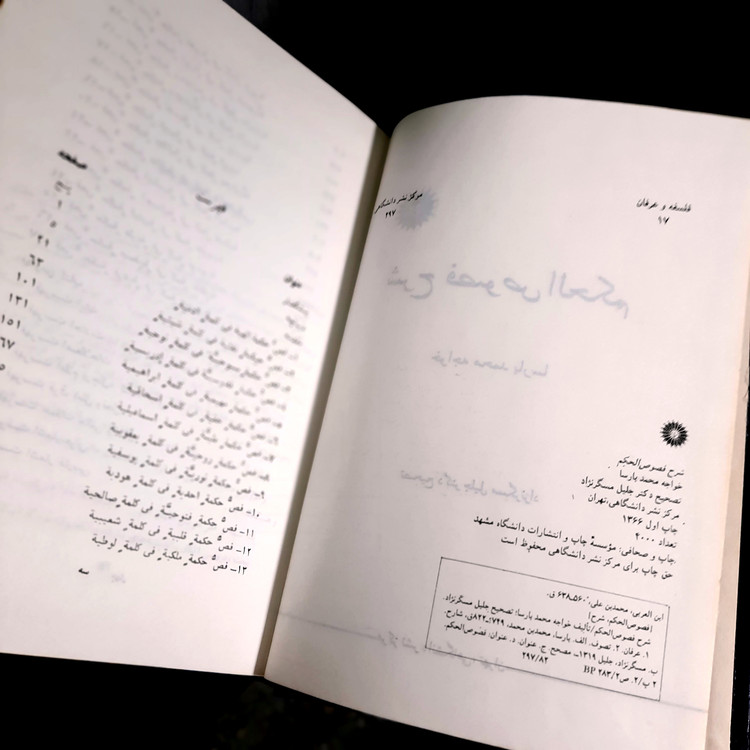 فلسفه و عرفان
۱۷
مرکز نشر دانشگاهی
۲۹۷
شرح فصوص‌الحکم
خواجه محمد پارسا
تصحیح دکتر جلیل مسگرنژاد
مرکز نشر دانشگاهی، تهران
چاپ اول ۱۳۶۶
تعداد ۴۰۰۰
چاپ و صحافی: مؤسسهٔ چاپ و انتشارات دانشگاه مشهد
حق چاپ برای مرکز نشر دانشگاهی محفوظ است
ابن العربی، محمدبن علی، ۵۶۰ـ۶۳۸ ق.
[فصوص‌الحکم، شرح]
شرح فصوص‌الحکم/تألیف خواجه محمد پارسا؛ تصحیح جلیل مسگرنژاد.
۱. عرفان. ۲. تصوف. الف. پارسا، محمدبن محمد، ۷۴۹؟ـ۸۲۲ق، شارح.
ب. مسگرنژاد، جلیل ۱۳۱۹ـ مصحح. ج. عنوان. د. عنوان: فصوص‌الحکم.
۲۹۷/۸۲
BP ۲۸۳/۲
فهرست
عنوان
صفحه
پنج
۱
۵
۲۱
۶۳
۱۰۱
۱۳۱
۱۵۱
فی کلمة ابراهیمیة
فی کلمة اسحاقیة
فی کلمة اسماعیلیة
فی کلمة یعقوبیة
۹ـ فص حکمة نوریة فی کلمة یوسفیة
۱۰ـ فص حکمة احدیة فی کلمة هودیة
۱۱ـ فص حکمة فتوحیة فی کلمة صالحیة
۱۲ـ فص حکمة قلبیة فی کلمة شعیبیة
۱۳ـ فص حکمة ملکیة فی کلمة لوطیة
سه